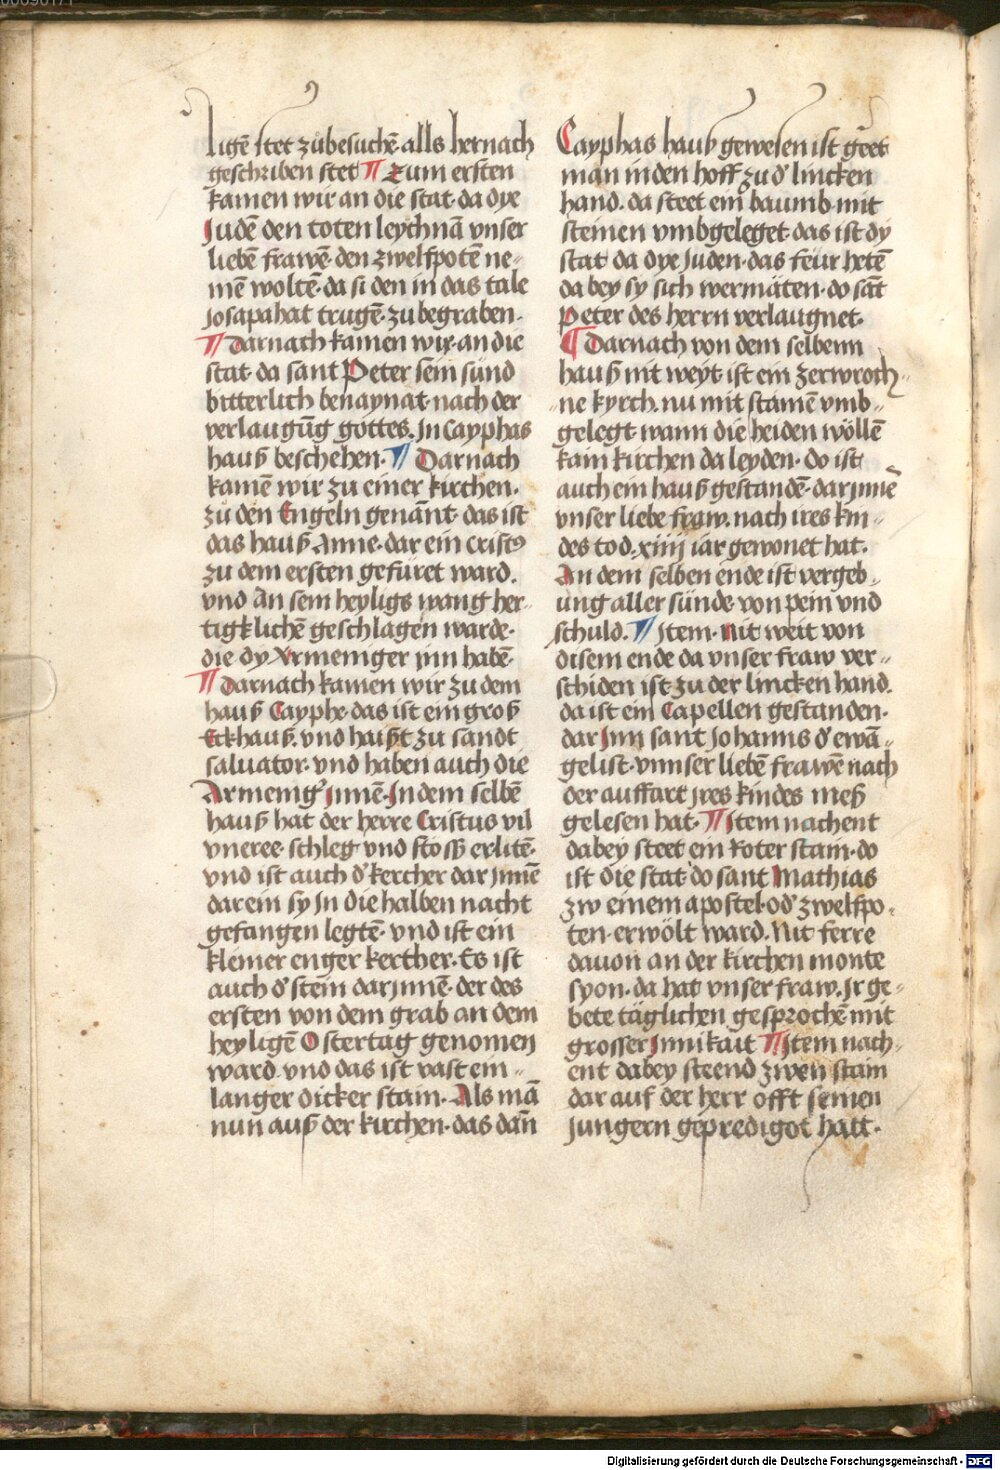 ligē stet zůbesuchē alls hernach
geschriben stet ¶ Zum ersten
kamen wir an die stat da dye
Judē den toten leychnā vnser
liebē frawē den zwelfpotē ne-
mē woltē da si den in das tale
Josaphat trugē zubegraben.
¶ Darnach kamen wir an die
stat da sant Peter sein sünd
bitterlich benaynat nach der
verlaugūg gottes. In Cayphas
hauß beschehen. ¶ Darnach
kamē wir zu einer kirchen.
zů den Engeln genānt das ist
das hauß Anne dar ein cristꝰ
zu dem ersten gefüret ward.
vnd An sein heyligs wang her-
tigklichē geschlagen warde.
die dy Armeniger inn habē
¶ Darnach kamen wir zu dem
hauß Cayphe das ist ein groß
Eckhauß. vnd haißt zu sandt
saluator. vnd haben auch die
Armenigʾ Jnnē. In dem selbē
hauß hat der herre Cristus vil
vneree schleg vnd stoss erlitē.
vnd ist auch dʾ kercher dar jnnē
dar ein sy In die halben nacht
gefangen legtē. vnd ist ein
kleiner enger kercher. Es ist
auch dʾ stein darjnnē der des
ersten von dem grab an dem
heyligē Ostertag genomen
ward. vnd das ist vast ein-
langer dicker stain. Als mā
nun auß der kirchen. das dañ
Cayphas hauß gewesen ist geet
man in den hoff zu dʾ lincken
hand. da steet ein baumb mit
steinen vmbgeleget das ist dy
stat da dye Juden das feur hetē
da bey sy sich wermäten do sāt
Peter des herrn verlaugnet.
¶ Darnach von dem selbenn
hauß nit weyt ist ein zerwroch-
ne kyrch. nu mit stainē vmb-
gelegt wann die heiden wöllē
kain kirchen da leyden. do ist
auch ein hauß gestandē darjnnē
vnser liebe fraw. nach ires kin-
des tod. xiiij iar gewonet hat.
An dem selben ende ist vergeb-
ung aller sünde von pein vnd
schuld. ¶ Item. Nit weit von
disem ende da vnser fraw ver-
schiden ist zu der lincken hand.
da ist ein Capellen gestanden.
dar Jnn sant Johanns dʾ ewā-
gelist. vnnser liebē frawē nach
der auffart jres kindes meß
gelesen hat. ¶ Item nachent
dabey steet ein Roter stain. do
ist die stat do sant Mathias
zw einem apostel. odʾ zwelfpo-
ten erwölt ward. Nit ferre
dauon an der kirchen monte
syon. da hat vnser fraw. Jr ge-
bete täglichen gesprochē mit
grosser Jnnikait ¶ Item nach-
ent dabey steend zwen stain
dar auf der herr offt seinen
Jungern gepredigot hatt.
Digitalisierung gefördert durch die Deutsche Forschungsgemeinschaft - DFG